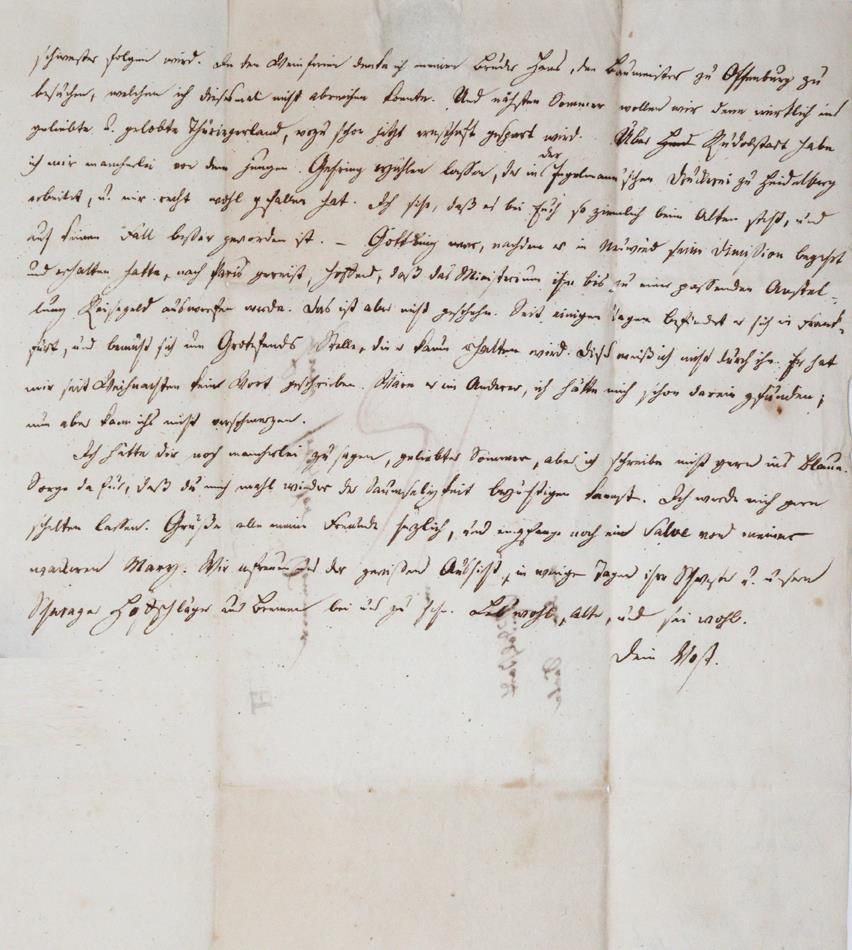 schwester folgen wird. In den Weinferien denke ich meinen Bruder Hans, den Baumeister zu Offenburg zu
besuchen, welchen ich diesmal nicht abreichen konnte. Und nächsten Sommer wollen wir denn wirklich ins
geliebte u. gelobte Thüringerland, wozu schon jetzt ernsthaft gespart wird. Über Rudolstadt habe
ich mir mancherlei von dem jungen Gehring erzählen lassen, der in der Engelmannschen Druckerei zu Heidelberg
arbeitet, u. mir recht wohl gefallen hat. Ich sehe, daß es bei Euch so ziemlich beim Alten steht, und
auf keinen Fall besser geworden ist. – Göttling war, nachdem er in Neuwied seine Dimission begehrt
und erhalten hatte, nach Paris gereist, hoffend, daß das Ministerium ihm bis zu einer passenden Anstel-
lung Reisegeld auswerfen werde. Das ist aber nicht geschehn. Seit einigen Tagen befindet er sich in Frank-
furt, und bemüht sich um Grotefends Stelle, die er kaum erhalten wird. Dieß weiß ich nicht durch ihn. Er hat
mir seit Weihnachten kein Wort geschrieben. Wäre er ein Anderer, ich hätte mich schon darein gefunden;
nun aber kann ichs nicht verschmerzen.
Ich hätte dir noch mancherlei zu sagen, geliebter Sommer, aber ich schreibe nicht gern ins Blaue.
Sorge dafür, daß du mich mahl wieder der Saumseligkeit bezüchtigen kannst. Ich werde mich gern
schelten lassen. Grüße alle meine Freunde herzlich, und empfange noch ein Salve von meiner
wackeren Mary. Wir erfreuen uns der gewissen Aussicht, in wenigen Tagen ihre Schwester u. unsern
Schwager aus Bremen bei uns zu sehn. Leb wohl, Alter, und sei wohl.
Dein Voß.